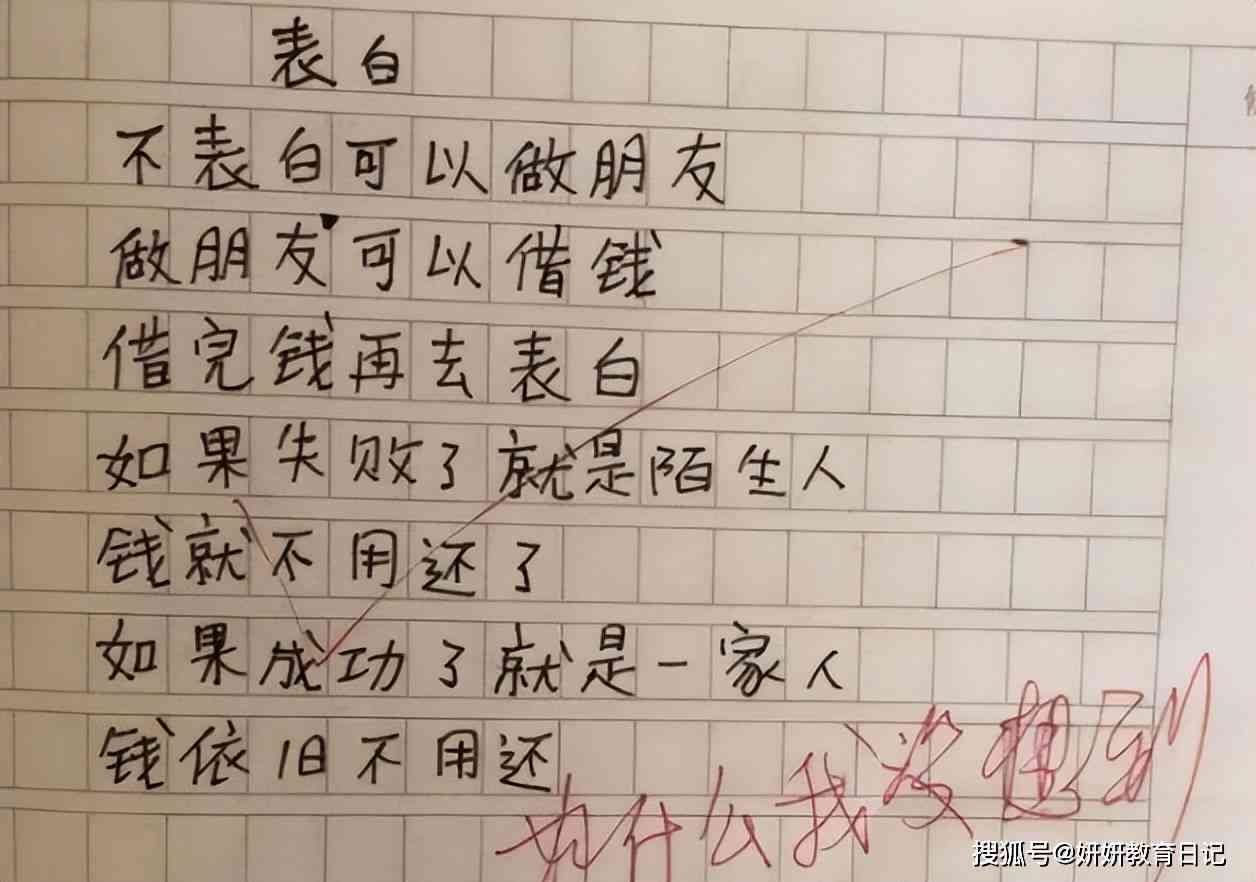 表白
不表白可以做朋友
做朋友可以借钱
借完钱再去表白
如果失败了就是陌生人
钱就不用还了
如果成功了就是一家人
钱依旧不用还
为什么我没想到
搜狐号@妍妍教育日记